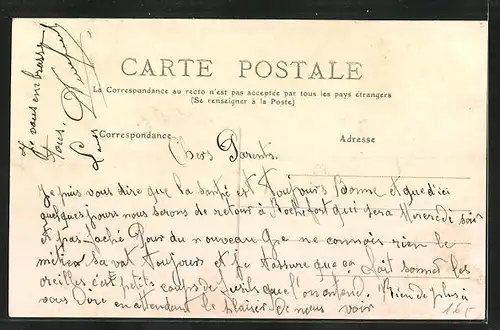 CARTE POSTALE
La Correspondance au recto n'est pas acceptée par tous les pays étrangers
(Se renseigner à la Poste)
Correspondance
Adresse
Chers Parents.
Je puis vous dire que la santé est toujours Bonne et que d'ici
quelques jours nous serons de retour à Rochefort qui sera Mercredi soir
pas faché Pour du nouveau Que ne connois rien le
milieu Sa va toujours et Je t'assure que ça fait sonner les
oreilles c'est petits coups de fusils que l'on entend. Rien de plus à
vous Dire en attendant le plaisir de nous voir
Je vous embrasse
Tous.
165